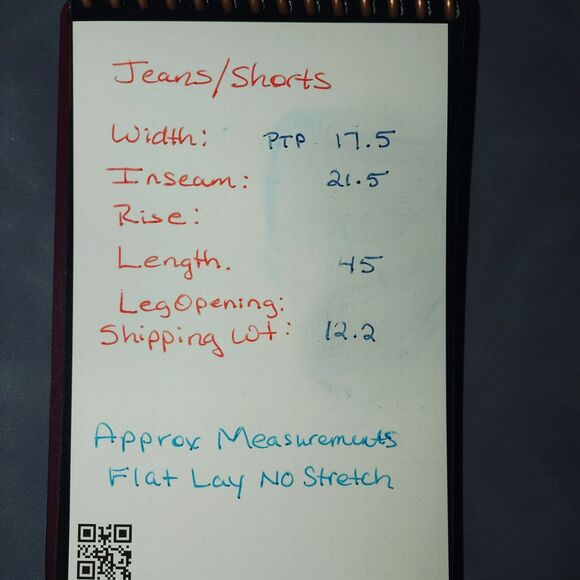 Jeans/Shorts
Width: PTP 17.5
Inseam: 21.5
Rise:
Length. 45
Leg Opening:
Shipping Wt: 12.2
Approx Measurements
Flat Lay No Stretch